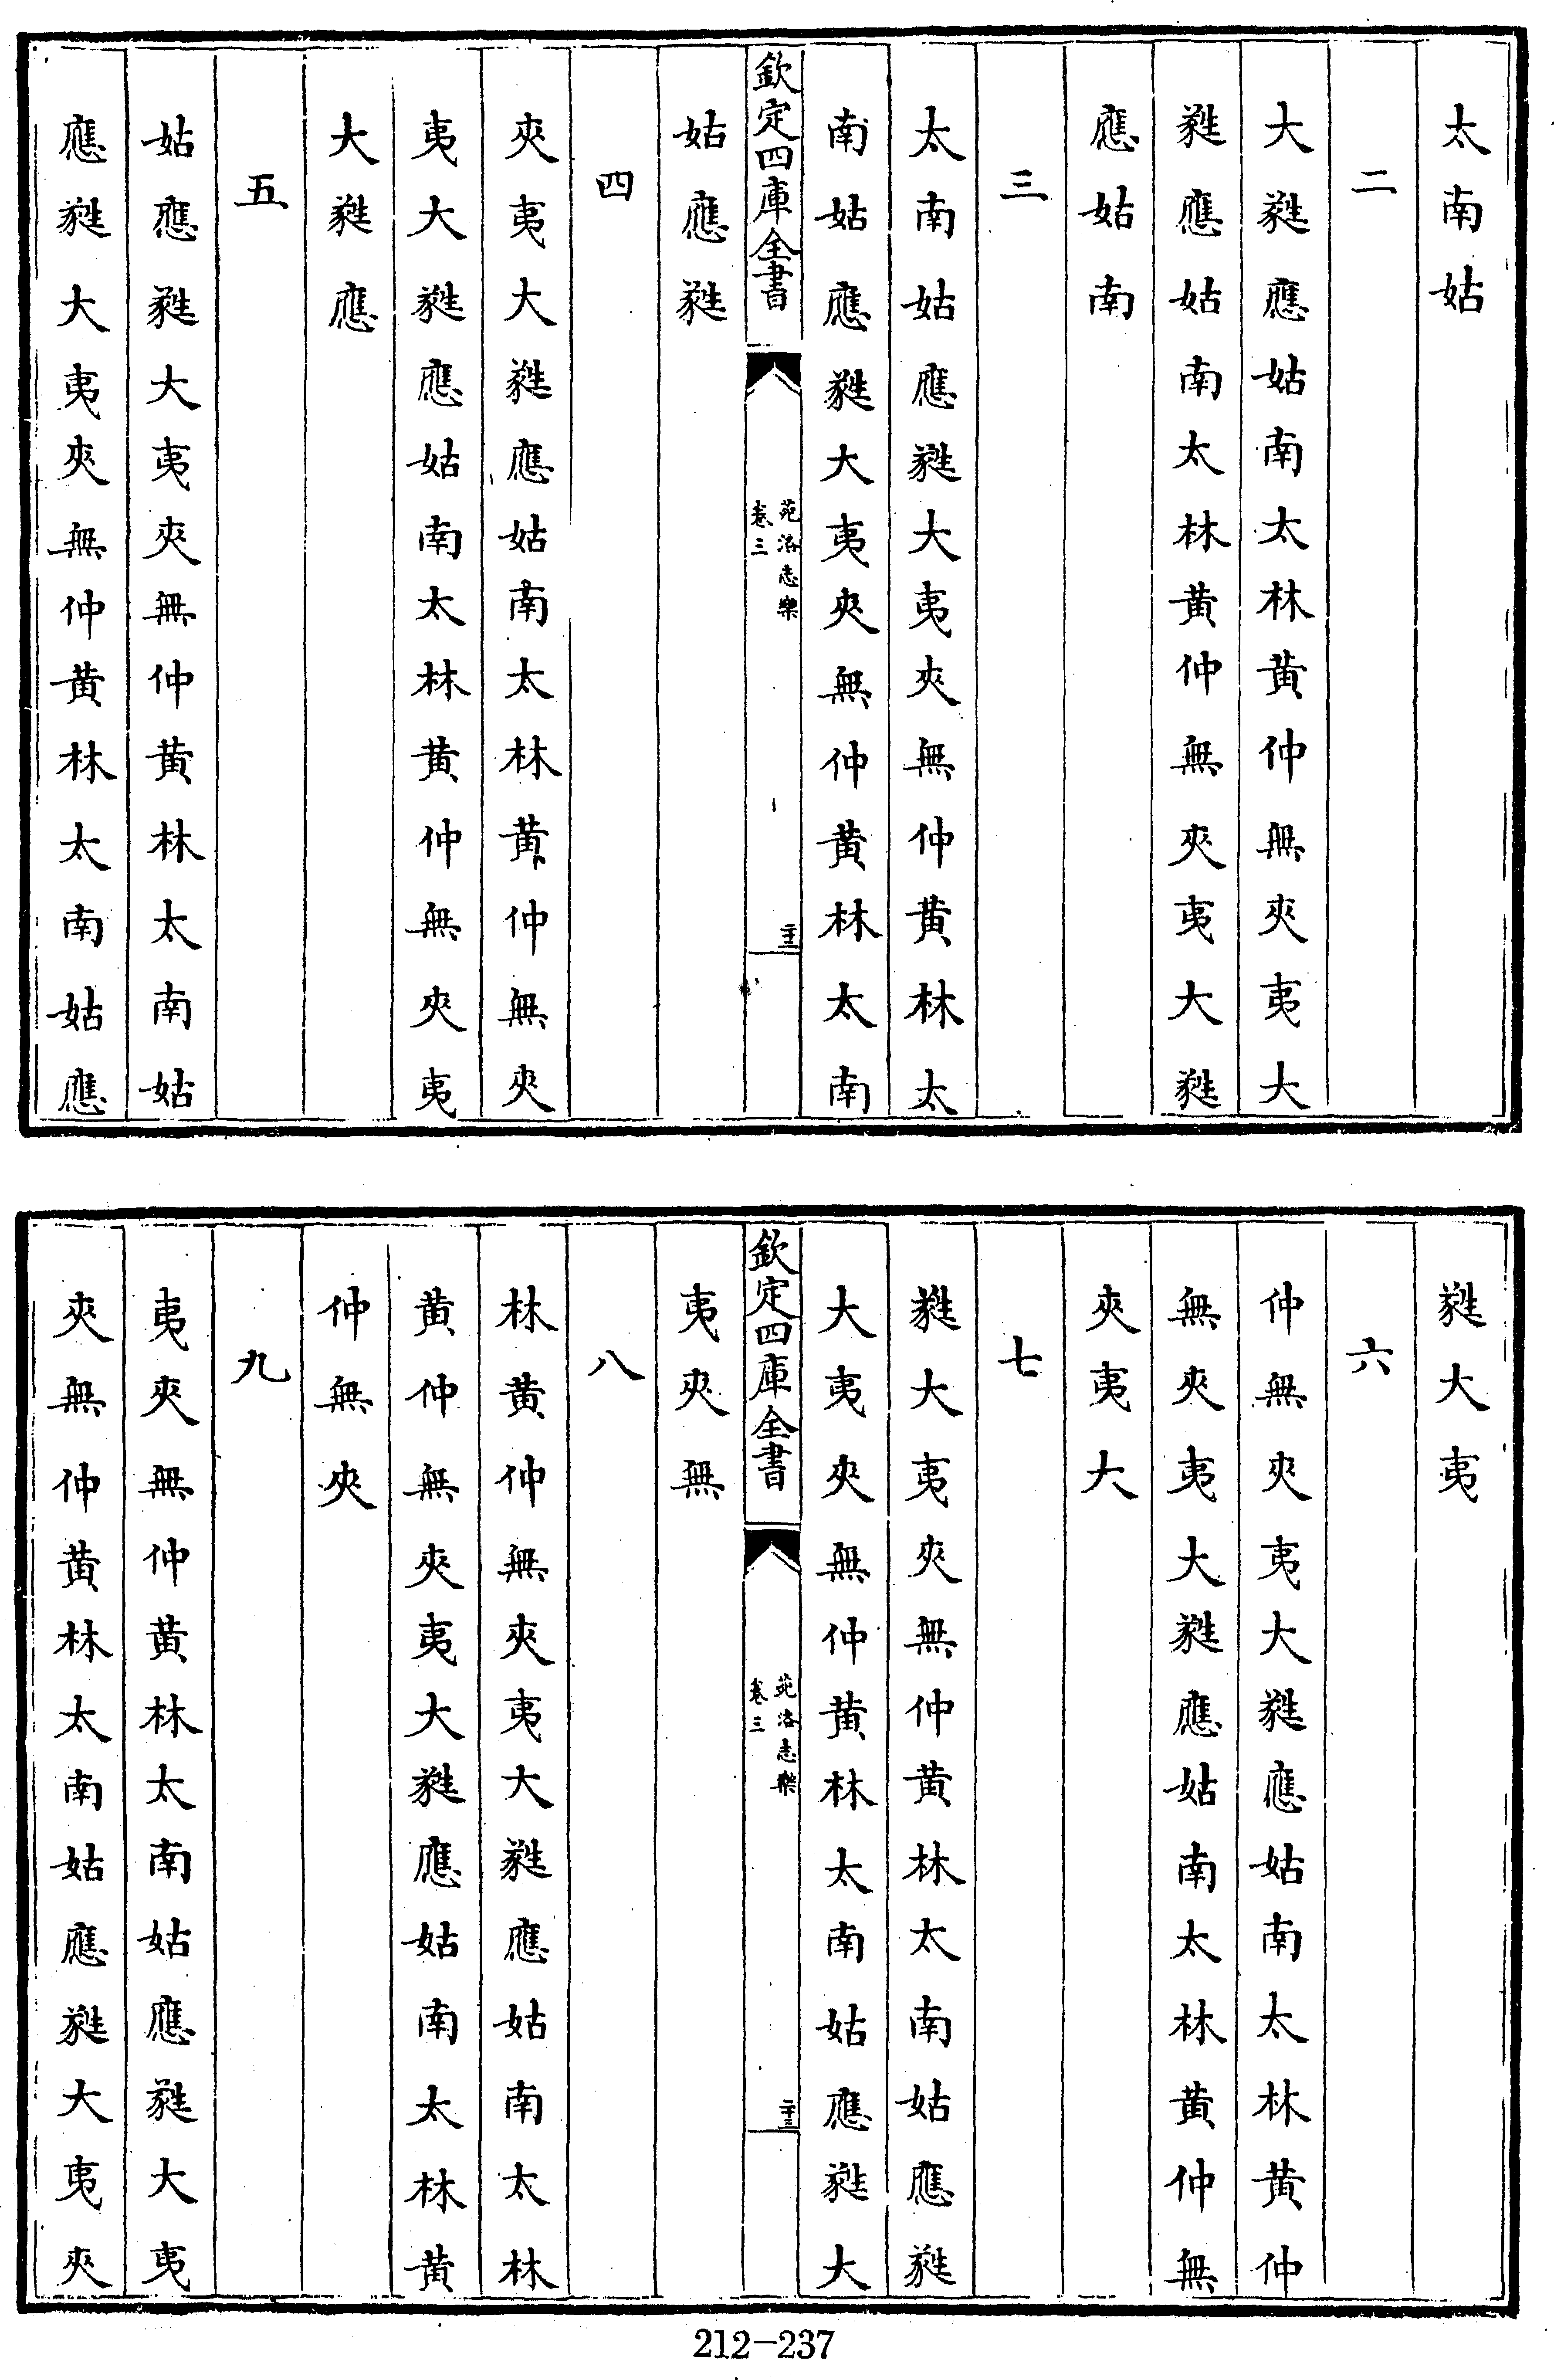 太南姑
二
大㽔應姑南太林黄仲無夾夷大
㽔應姑南太林黄仲無夾夷大㽔
應姑南
三
太南姑應㽔大夷夾無仲黄林太
南姑應㽔大夷夾無仲黄林太南
欽定四庫全書
苑洛志樂
卷三
二十二
姑應㽔
四
夾夷大㽔應姑南太林黄仲無夾
夷大㽔應姑南太林黄仲無夾夷
大㽔應
五
姑應㽔大夷夾無仲黄林太南姑
應㽔大夷夾無仲黄林太南姑應
㽔大夷
六
仲無夾夷大㽔應姑南太林黄仲
無夾夷大㽔應姑南太林黄仲無
夾夷大
七
㽔大夷夾無仲黄林太南姑應㽔
大夷夾無仲黄林太南姑應㽔大
欽定四庫全書
苑洛志樂
卷三
二十三
夷夾無
八
林黄仲無夾夷大㽔應姑南太林
黄仲無夾夷大㽔應姑南太林黄
仲無夾
九
夷夾無仲黄林太南姑應㽔大夷
夾無仲黄林太南姑應㽔大夷夾
212-237